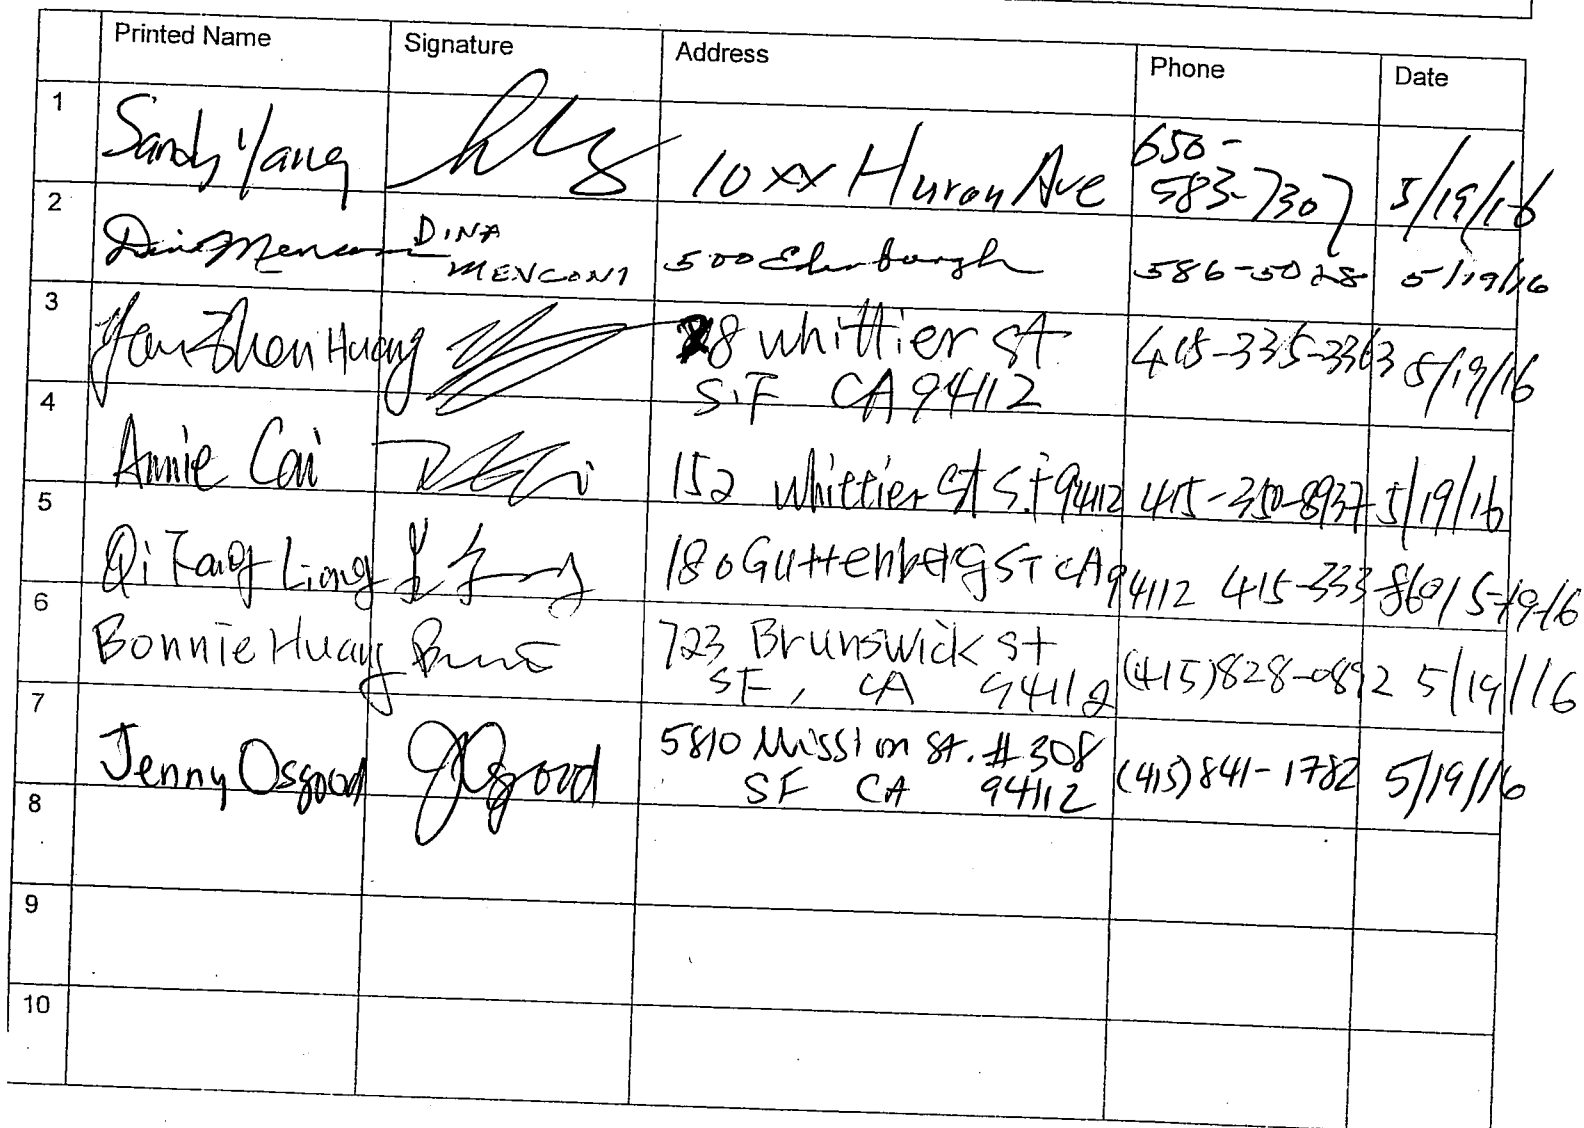 Printed Name Signature Address Phone Date
1 Sandy Yang 10xx Huron Ave 650-
583-7307 5/19/16
2 Dina Menconi DINA
MENCONI 500 Edinburgh 586-5028 5/19/16
3 Yan Zhen Huang 28 Whittier St
S.F CA 94112 415-335-3363 5/19/16
4 Annie Cai 152 Whittier St S.F 94112 415-350-8937 5/19/16
5 Qi Fang Liang 180 Guttenberg ST CA 94112 415-333-8601 5-19-16
6 Bonnie Huang 723 Brunswick St
SF, CA 94112 (415)828-0892 5/19/16
7 Jenny Osgood JOsgood 5810 Mission St. #308
SF CA 94112 (415)841-1782 5/19/16
8
9
10